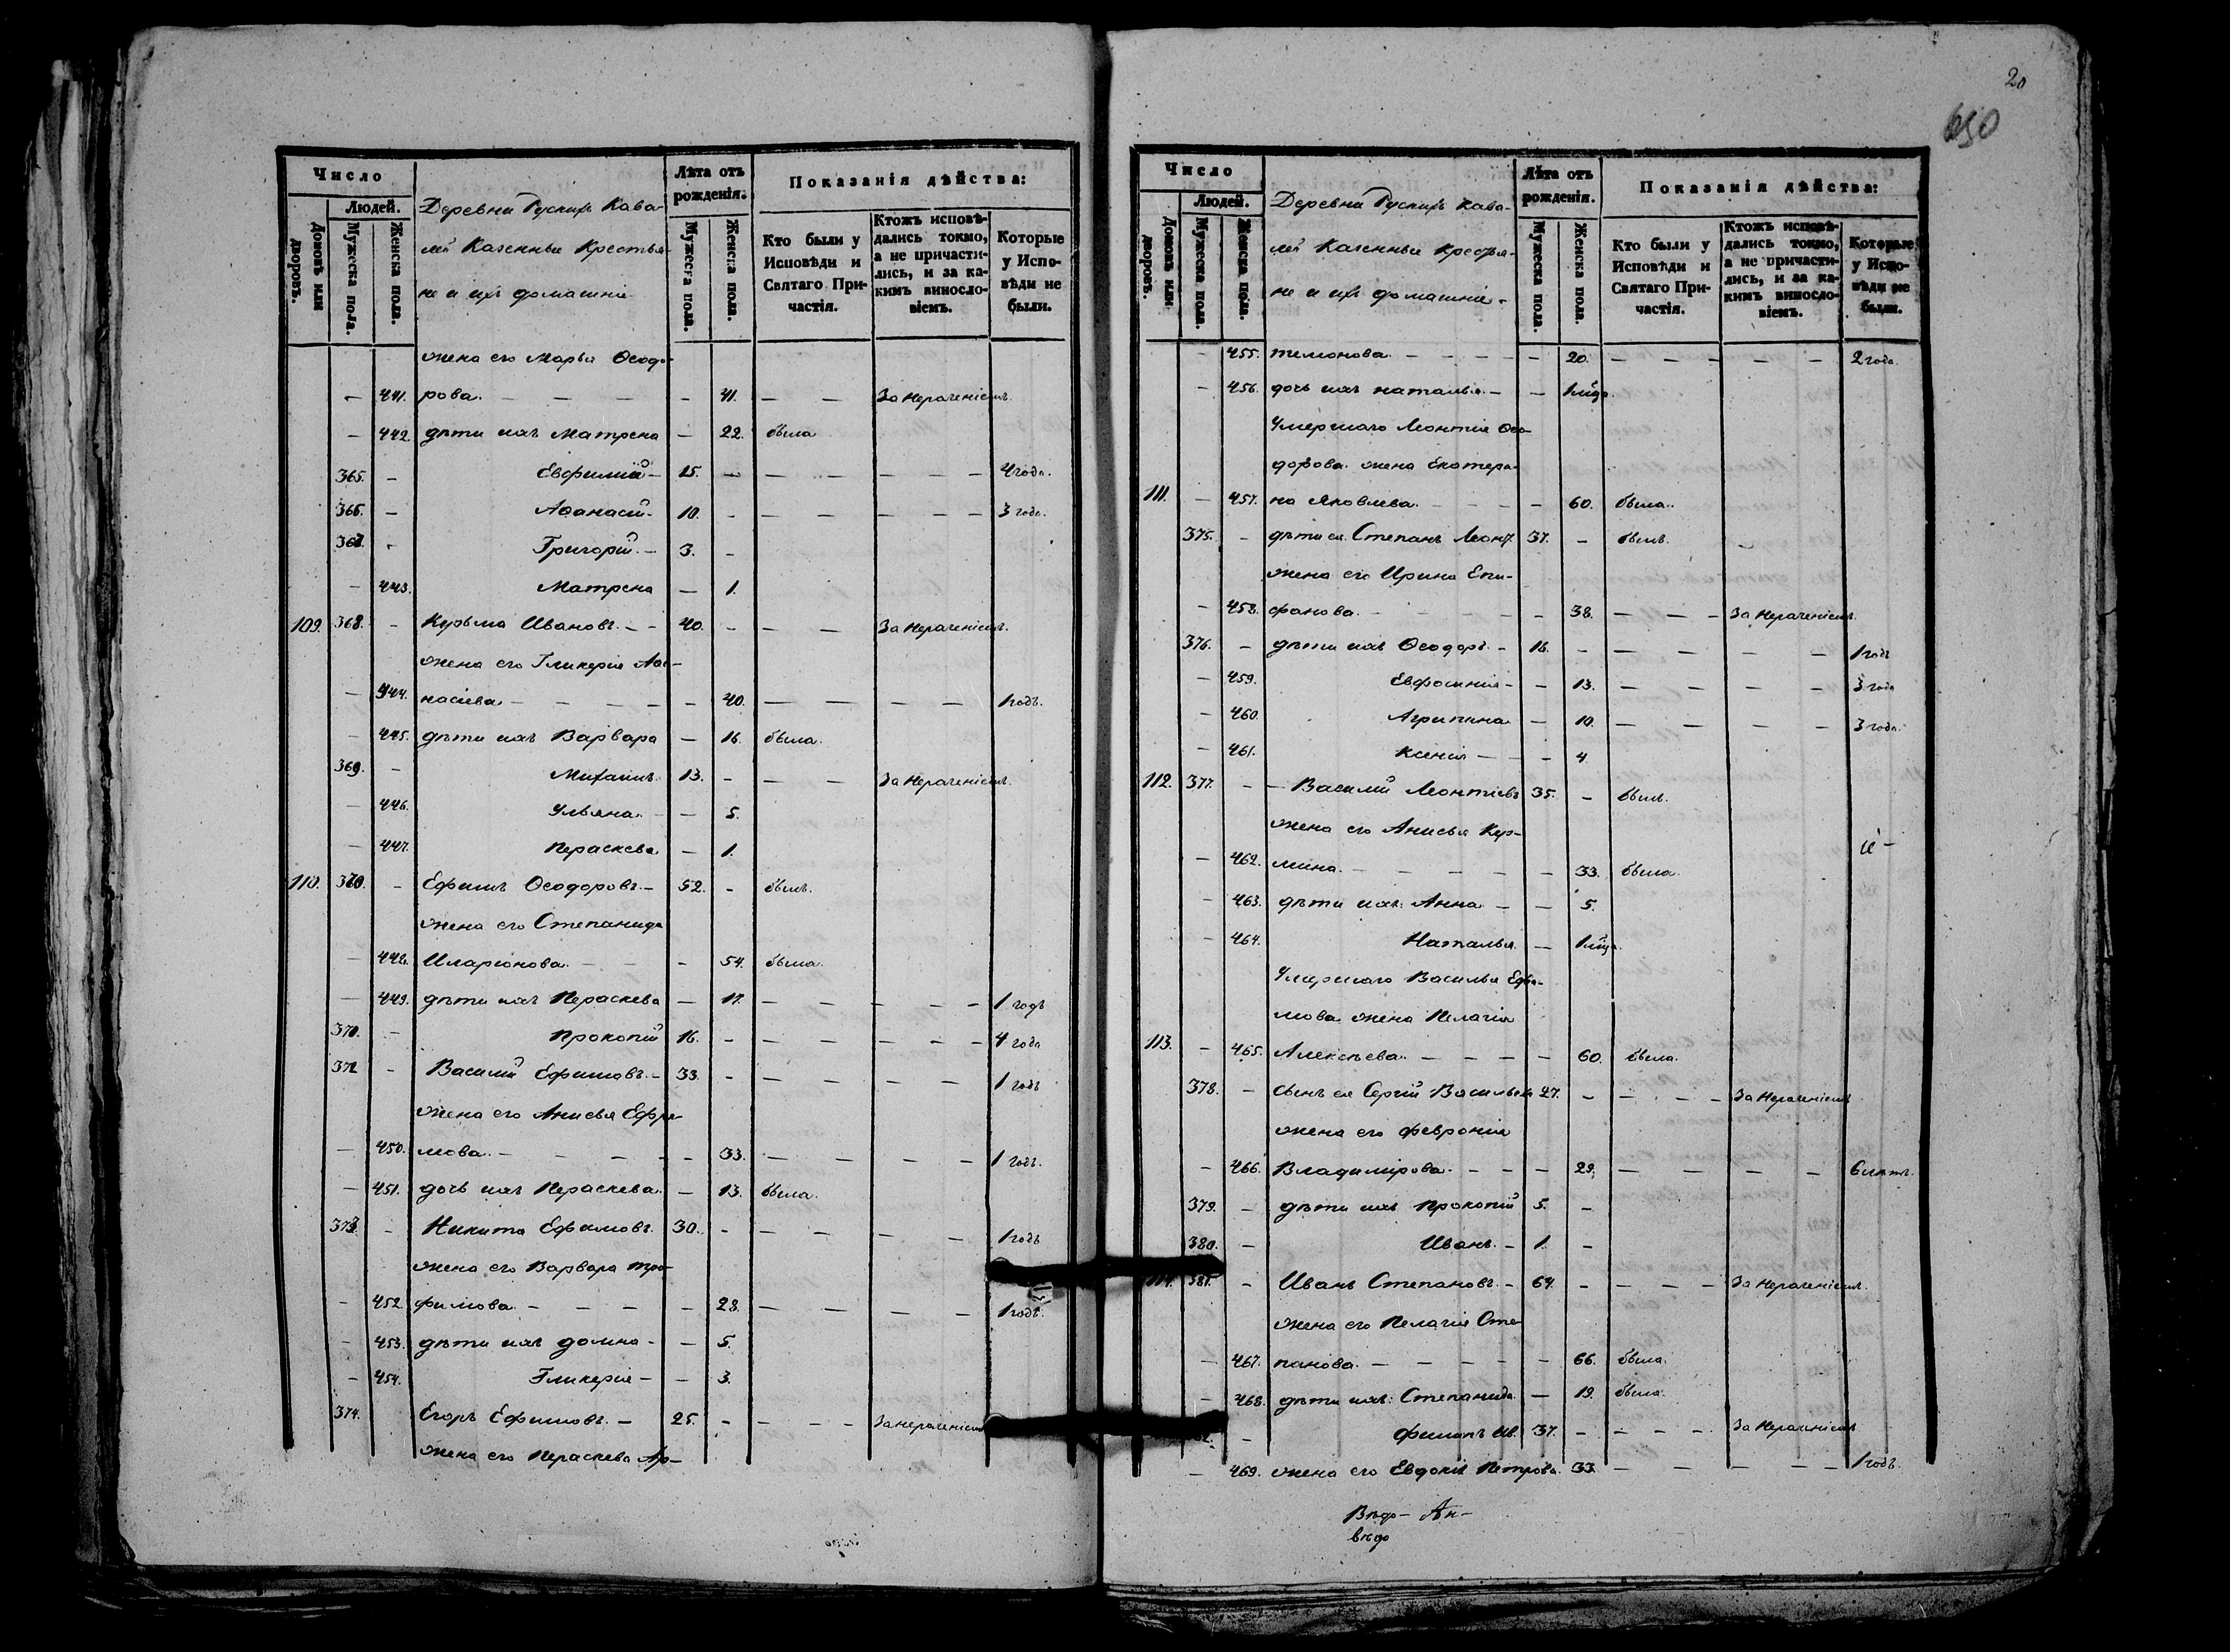 20
650
Число
Людей.
Домовъ или дворовъ.
Мужеска пола.
Женска пола.
Деревни Рускихъ Кава-
лей Казенные Крестья-
не и ихъ домашніе
Лѣта отъ рожденія.
Мужеска пола.
Женска пола.
Показанія дѣйства:
Кто были у Исповѣди и Святаго При-частія.
Ктожъ исповѣ-дались токмо, а не причасти-лись, и за ка-кимъ виносло-віемъ.
Которые у Испо-вѣди не были.
жена его Марья Ѳеодо-
— 441. рова. — — — — 41. — — За нерачѣніемъ.
— 442. дѣти ихъ Матрена — 22. была
365. — Евфимій — 15. — — — — — — 4 года.
366. — Аѳанасій — 10. — — — — — — 3 года.
367. — Григорій — 3. —
— 443. Матрена — 1.
109. 368. — Кузьма Ивановъ. — — 40. — — — За нерачѣніемъ.
жена его Гликерія Аѳа-
— 444. насіева — — — — — 40. — — — — 1 годъ.
— 445. дѣти ихъ Варвара — 16. была.
369. — Михаилъ 13. — — — За нерачѣніемъ.
— 446. Ульяна — — 5.
— 447. Пераскева — 1.
110. 370. — Ефимъ Ѳеодоровъ. — 52. — былъ.
жена его Степанида
— 448. Иларіонова. — — — 54. была.
— 449. дѣти ихъ Пераскева — 17. — — — — — 1 годъ
371. — Прокопій 16. — — — — — — 4 года
372 — Василій Ефимовъ. — 33. — — — — — — 1 годъ
жена его Анисья Ефре-
— 450. мова. — — — — — 33. — — — — 1 годъ.
— 451. дочь ихъ Пераскева. — 13. была.
373. — Никита Ефимовъ. 30. — — — — — 1 годъ
жена его Варвара Тро-
— 452. фимова. — — — — 28. — — — — 1 годъ.
— 453. дѣти ихъ Домна — — 5.
— 454. Гликерія — — 3.
374. Егоръ Ефимовъ. — 25. — — — — За нерачѣніемъ
жена его Пераскева Ар-
Число
Людей.
Домовъ или дворовъ.
Мужеска пола.
Женска пола.
Деревни Рускихъ Кава-
лей Казенные Крестья-
не и ихъ домашніе —
Лѣта отъ рожденія.
Мужеска пола.
Женска пола.
Показанія дѣйства:
Кто были у Исповѣди и Святаго При-частія.
Ктожъ исповѣ-дались токмо, а не причасти-лись, и за ка-кимъ виносло-віемъ.
Которые у Испо-вѣди не были.
— 455. темонова. — — — — — 20. — — — — — 2 года.
— 456. дочь ихъ Наталья. — — 1
Умершаго Леонтия Ѳео-
дорова жена Екатери-
111. — 457. на Яковлева. — — — — 60. была.
375. — дѣти ея Степанъ Леонт. 37. — былъ.
жена его Ирина Епи-
— 458. фанова. — — — — — 38. — — — За нерачѣніемъ.
376. — дѣти ихъ Ѳеодоръ. — 16. — — — — — 1 годъ
— 459. Евфросинія — — 13. — — — — — 3 года
— 460. Агрипина — 10. — — — — — 3 года.
— 461. Ксенія — — — 4
112. 377. — — Василій Леонтіевъ 35. — былъ.
жена его Анисья Кузь-
— 462. мина. — — — — — 33. была.
— 463. дѣти ихъ: Анна — — 5.
— 464. Наталья — 1
Умершаго Василья Ефре-
мова жена Пелагія
113. — 465. Алексѣева. — — — — 60. была.
378. — сынъ ея Сергій Васильевъ 27. — — — — За нерачѣніемъ
жена его Февронія
— 466. Владимірова. — — — 29. — — — — — 6 лѣтъ.
379. — дѣти ихъ Прокопій 5. —
380. — Иванъ. — 1. —
114. 381. — Иванъ Степановъ. — 64. — — — — За нерачѣніемъ.
жена его Пелагія Сте-
— 467. панова. — — — — — 66. была.
— 468. дѣти ихъ: Степанида. — 19. была.
— Филипъ Ив. 37. — — — — За нерачѣніемъ
— 469. жена его Евдокія Петрова. 33. — — — — — 1 годъ.